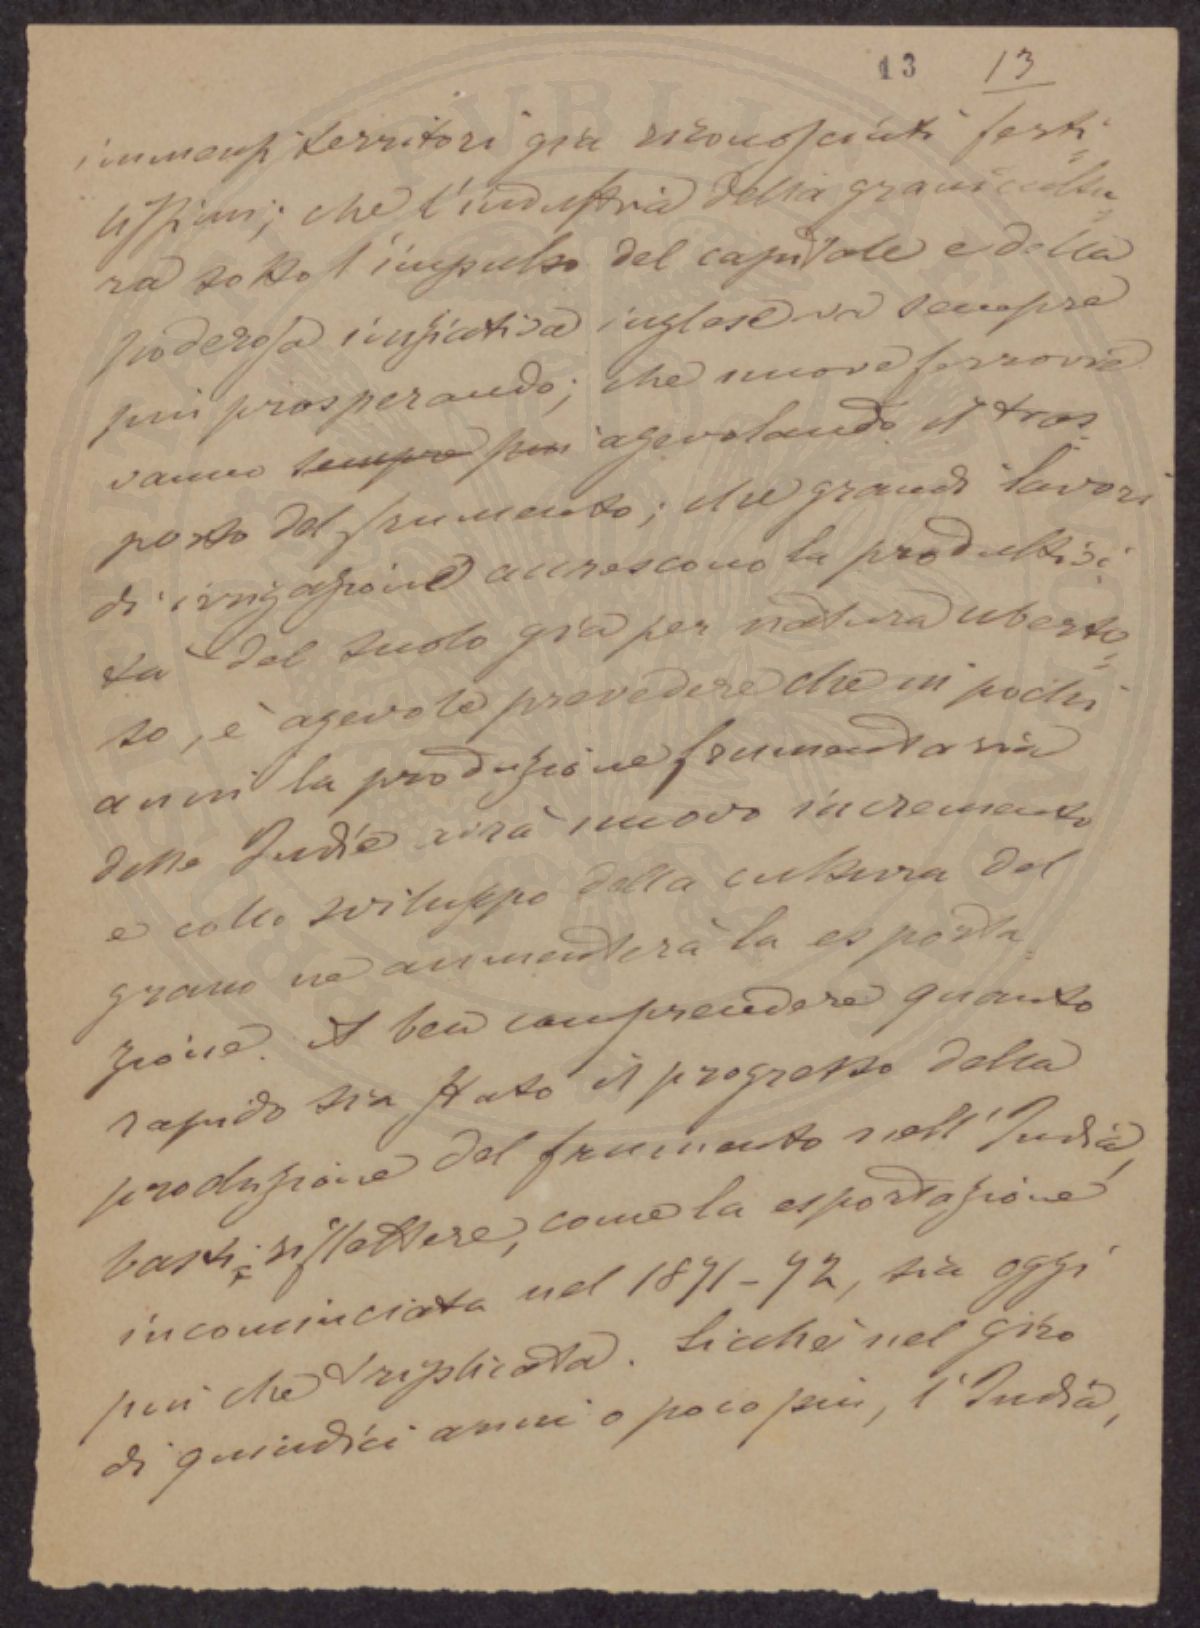 13 13
immensi territori già riconosciuti ferti-
lissimi; che l'industria della granicultu-
ra sotto l'impulso del capitale e della
poderosa iniziativa inglese va sempre
più prosperando; che nuove ferrovie
vanno sempre più agevolando il tras-
porto del frumento; che grandi lavori
di irrigazione accrescono la produttivi-
tà del suolo già per natura uberto-
so, è agevole prevedere che in pochi
anni la produzione frumentaria
delle Indie avrà nuovo incremento
e collo sviluppo della cultura del
grano ne aumenterà la esporta-
zione. A ben comprendere quanto
rapido sia stato il progresso della
produzione del frumento nell'India,
basti riflettere, come la esportazione
incominciata nel 1871-72, sia oggi
più che triplicata. Sicchè nel giro
di quindici anni o poco più, l'India,